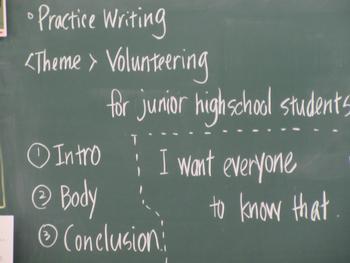 ° Practice Writing
<Theme> Volunteering
for junior highschool students
① Intro
② Body
③ Conclusion
I want everyone
to know that.